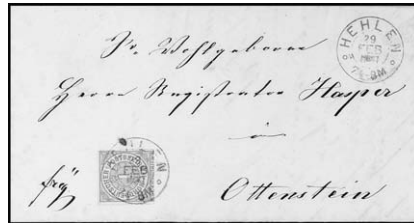 HEHLEN
29
FEB
7½-8M
Sr. Wohlgeboren
Herrn Registrator Hasper
in
Ottenstein
frg
HEHLEN
FEB
8M